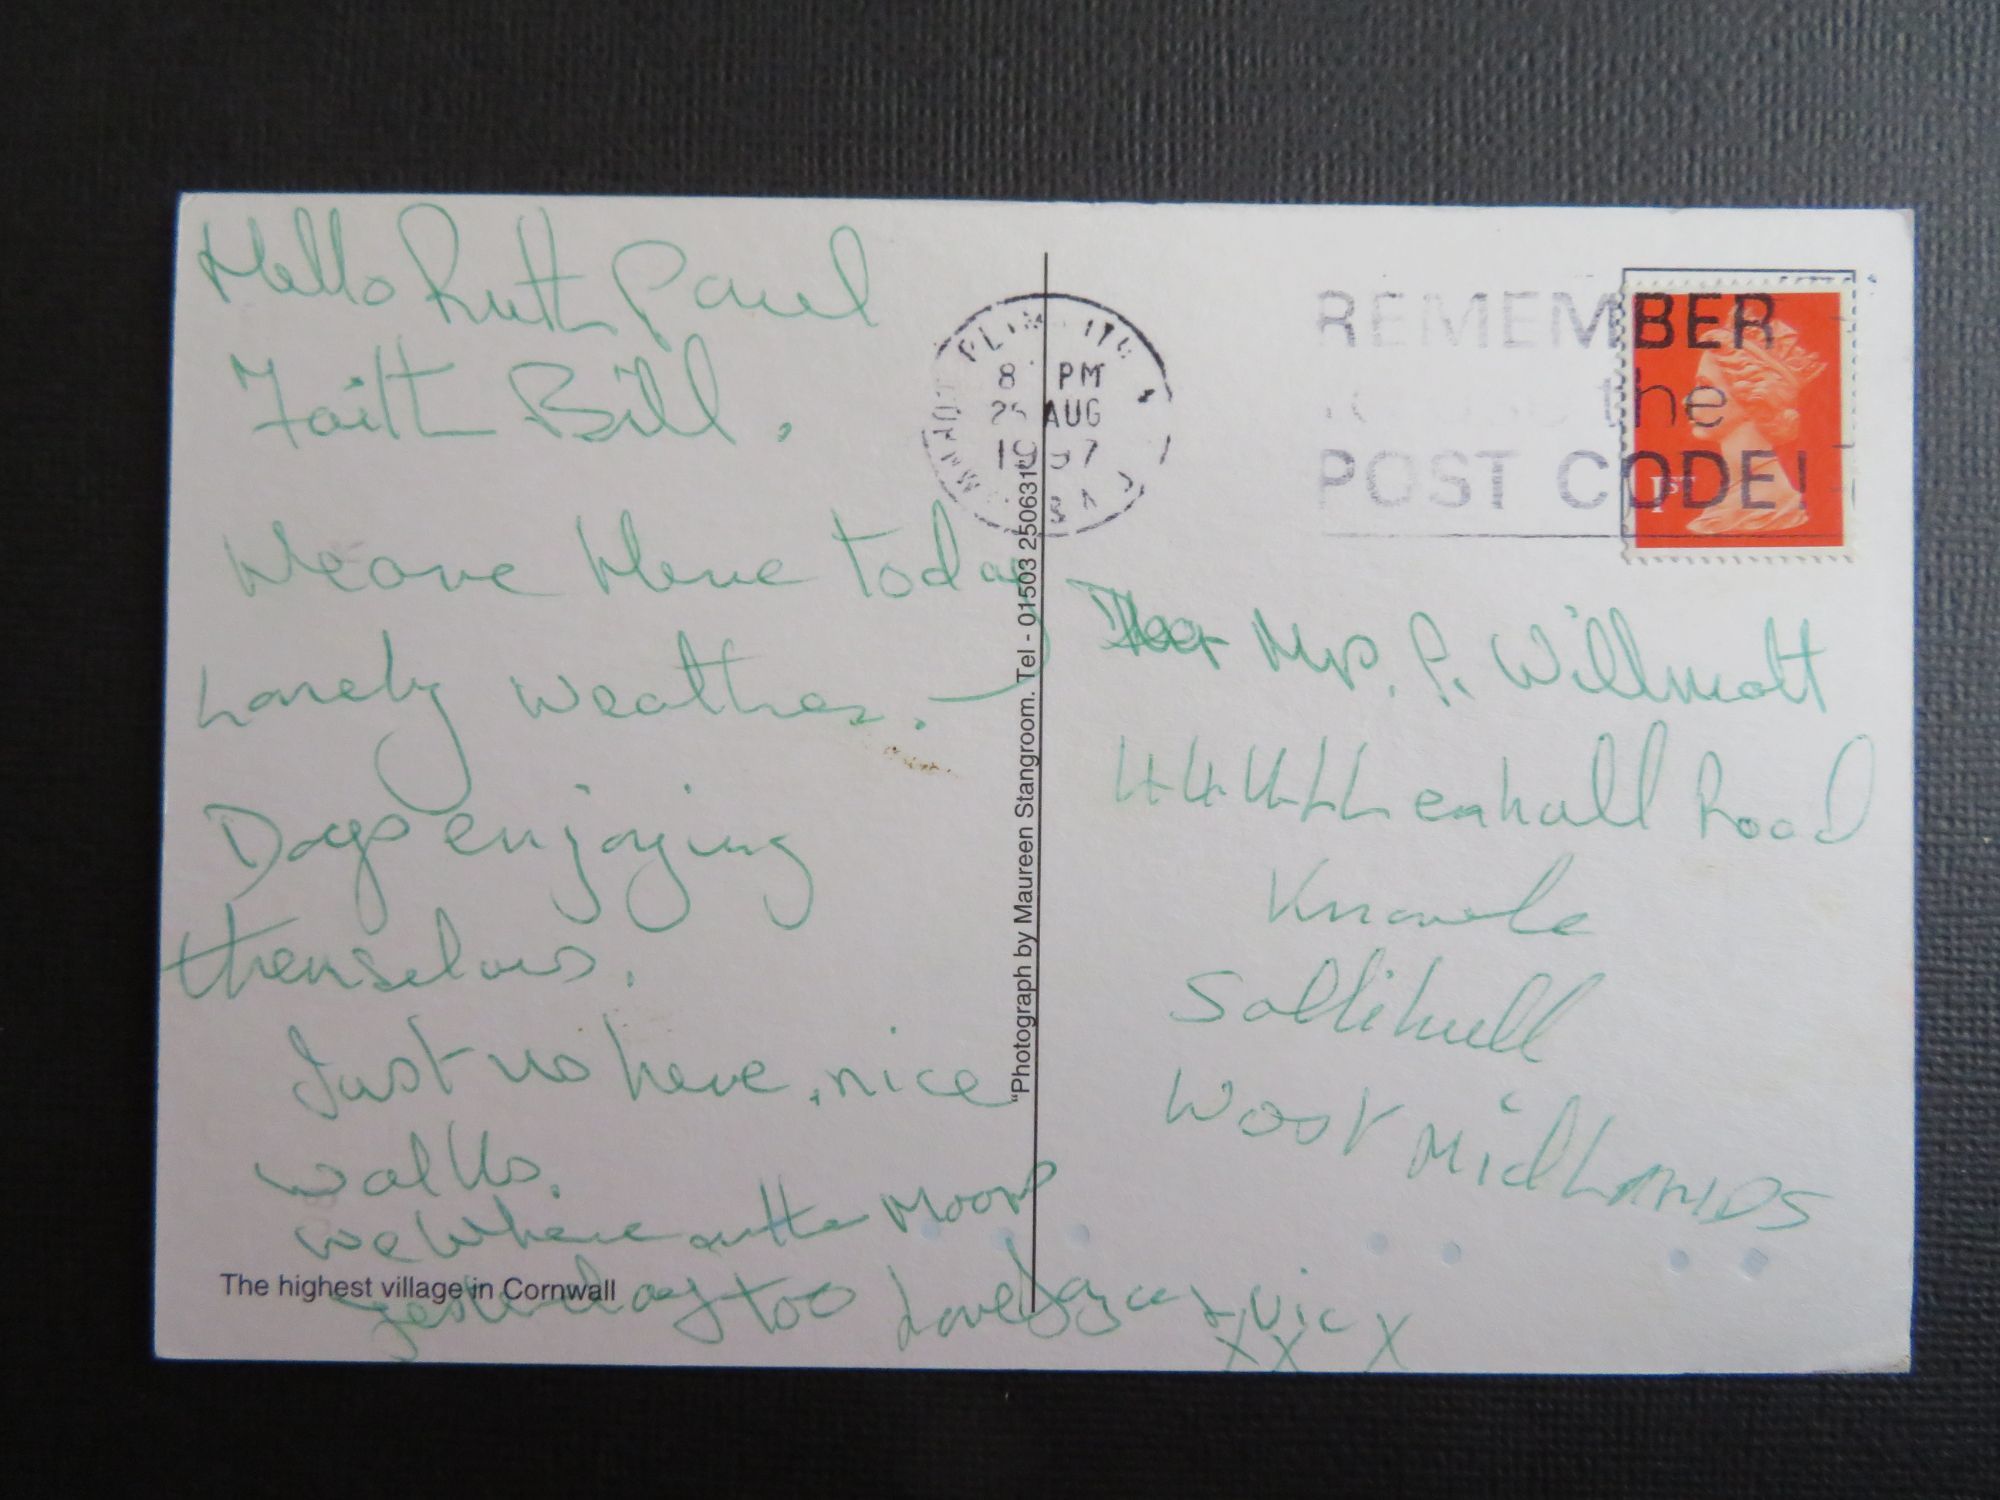 Hello Ruth Paul
Faith Bill.
We are Here today
Lovely weather.
Dogs enjoying
themselves.
Just us here, nice
walks.
we Where on the Moors
yesterday too Love Joyce & Vic X
X X X
The highest village in Cornwall
"Photograph by Maureen Stangroom. Tel - 01503 250631"
8 PM
AUG
REMEMBER
the
POST CODE!
1ST
Mrs. P. Willmott
Road
Knowle
Sollihull
West MidLANDS